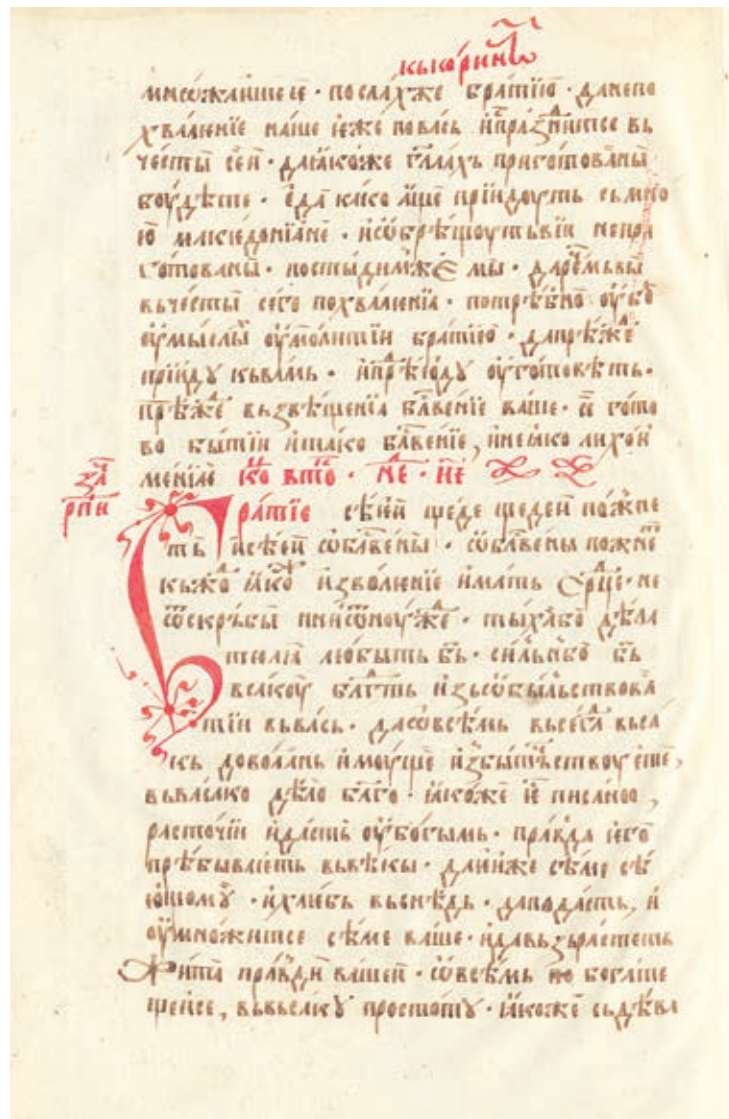 кькѡринⷴѡ
множаишеѥ · послахже братїю · данепо
хвалѥнїе наше ѥже повась ипразⷣнитсе вь
чести сеи · даꙗкоже гл҃лахь приготовани
боудѣте · еда како аще прїидоуть сьмно
ю макїедонїане · иѡбрѣщоутьвїи непри
готованы · постидимжесе мы · даречⷨемьвы
вьчести сего похвалѥнїа · потрѣбно оубо
оумыслы оумолитїи братїю · дапрѣжⷣе
прїидꙋ кьвамь · ипрѣⷣидꙋ оуготовѣть ·
прѣжⷣе вьзвѣщенїа блⷭ҇венїе ваше · се гото
во бытїи итако блⷭ҇венїе, инеꙗко лихои
менїае
братїе сѣеи щеде щедеи пожне
ть исѣеи ѡблⷭ҇вены · ѡблⷭ҇вены пожнеⷮ
кьжⷣо ꙗкоⷤ изволѥнїе имать срⷣце · не
ѿскрьбы ниѿноужⷣе · тыхабо дѣла
телꙗ любыть б҃ь · сильньбо б҃ь
всакоу блгⷣть изьѡбыльствова
тїи вьвась · даѡвсемь всегⷣа вьса
кь доволань имоуще избытьчьствоуете,
вьвьсако дѣло бл҃го · ꙗкоже ѥⷭ писаноо,
расточїи идасть оубогымь · правда ѥго
прѣбываеть вьвѣкы · даиже сѣме сѣ
ющомꙋ · ихлѣбь вьснѣдь · даподасть, и
оумножитсе сѣме ваше · идавьзьрастеть
жита правⷣди вашеи · ѡвсемь но богаще
щеисе, вьвьсакꙋ простотꙋ · ꙗкоже сьдѣва